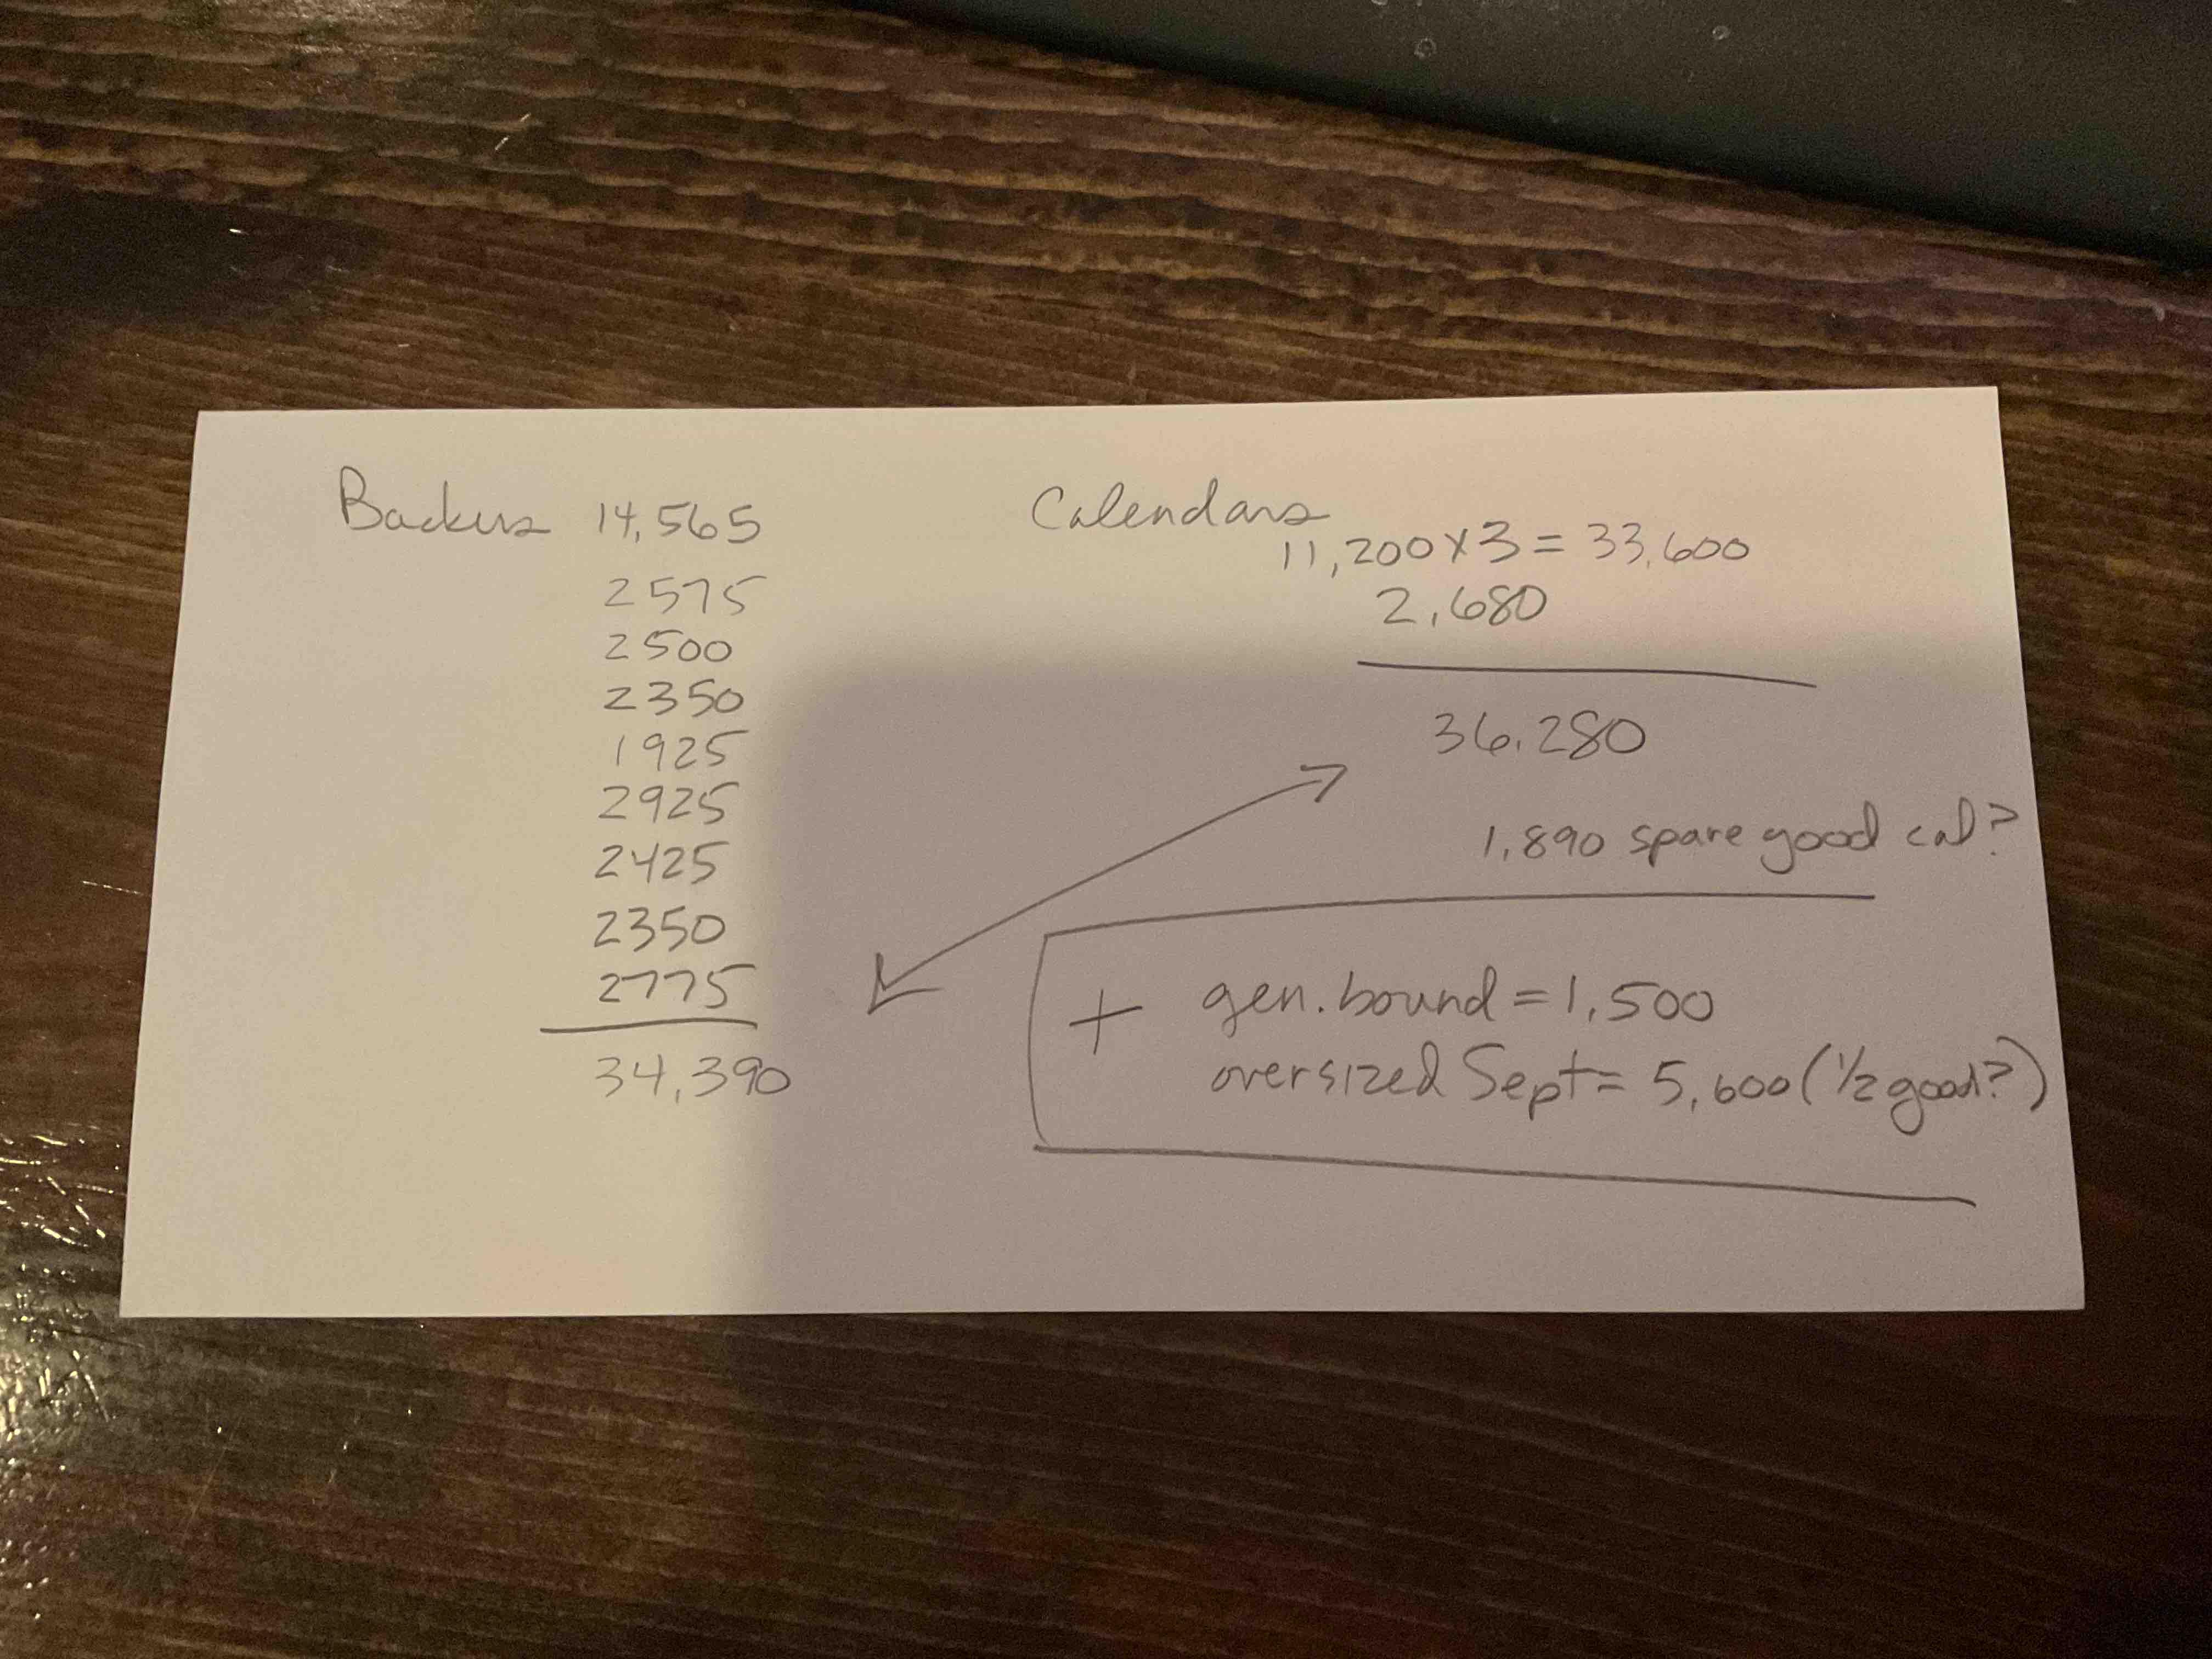 Backers 14,565
2575
2500
2350
1925
2925
2425
2350
2775
34,390
Calendars
11,200 x 3 = 33,600
2,680
36,280
1,890 spare good cal?
+ gen. bound = 1,500
oversized Sept = 5,600 (1/2 good?)